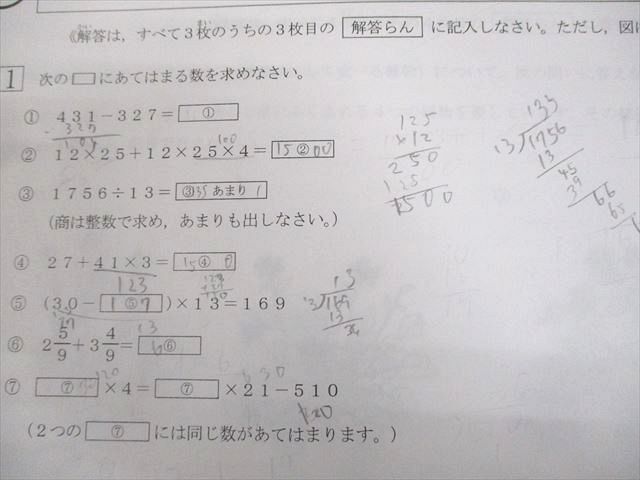 《解答は，すべて３枚のうちの３枚目の 解答らん に記入しなさい。ただし，図
1 次の□にあてはまる数を求めなさい。
① ４３１－３２７＝ ①
② １２×２５＋１２×２５×４＝ 15②00
100
③ １７５６÷１３＝ ③35 あまり 1
（商は整数で求め，あまりも出しなさい。）
④ ２７＋４１×３＝ 15④0
123
⑤ （３０－ 1⑤7 ）×１３＝１６９
⑥ 2 5/9 ＋ 3 4/9 ＝ 6⑥
⑦ ⑦ ×４＝ ⑦ ×２１－５１０
（２つの ⑦ には同じ数があてはまります。）
125
×12
250
125
1500
135
13)1756
13
45
39
66
65
1
13
13)169
13